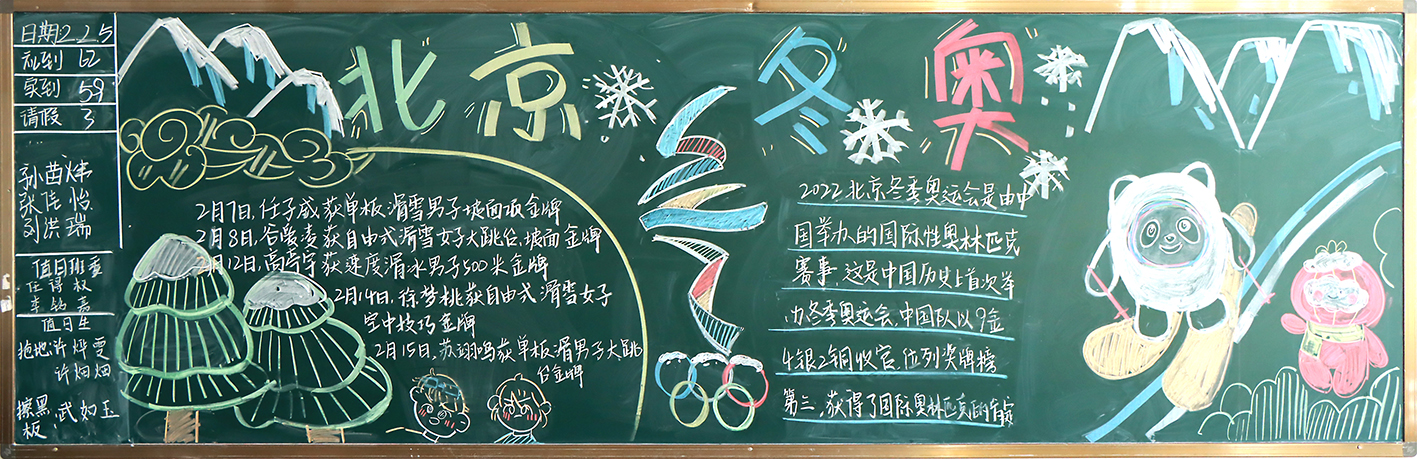 日期22.5
礼到 62
实到 59
请假 3
孙茵炜
张佳怡
刘洪瑞
值日班委
任得权
李铭嘉
值日生
拖地:许烨雯
许畑畑
擦黑板:武如玉
北京冬奥
2月7日,任子威获单板滑雪男子坡面板金牌
2月8日,谷爱凌获自由式滑雪女子大跳台,坡面金牌
2月12日,高亭宇获速度滑冰男子500米金牌
2月14日,徐梦桃获自由式滑雪女子
空中技巧金牌
2月15日,苏翊鸣获单板滑男子大跳
台金牌
2022北京冬季奥运会是由中
国举办的国际性奥林匹克
赛事,这是中国历史上首次举
办冬季奥运会,中国队以9金
4银2铜收官,位列奖牌榜
第三,获得了国际奥林匹克的